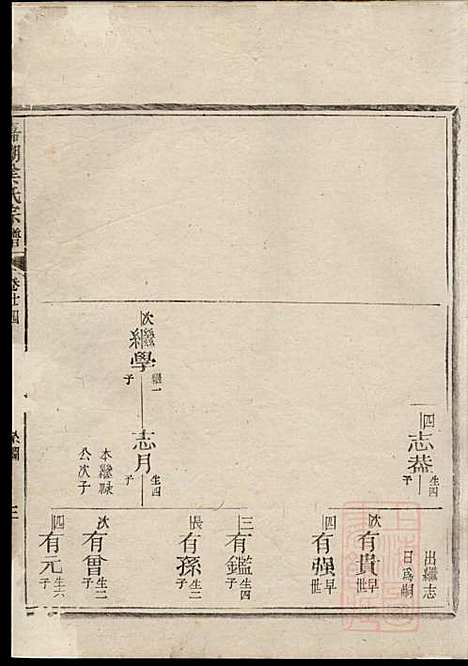 四
志恭
生四
子
出繼志
日為嗣
次
有貴
早
世
四
有强
早
世
次
繼學
繼一
子
志月
生四
子
本繼祿
公次子
三
有鑑
生四
子
長
有孫
生二
子
次
有曾
生二
子
四
有元
生六
子
余氏宗譜
卷廿四
三